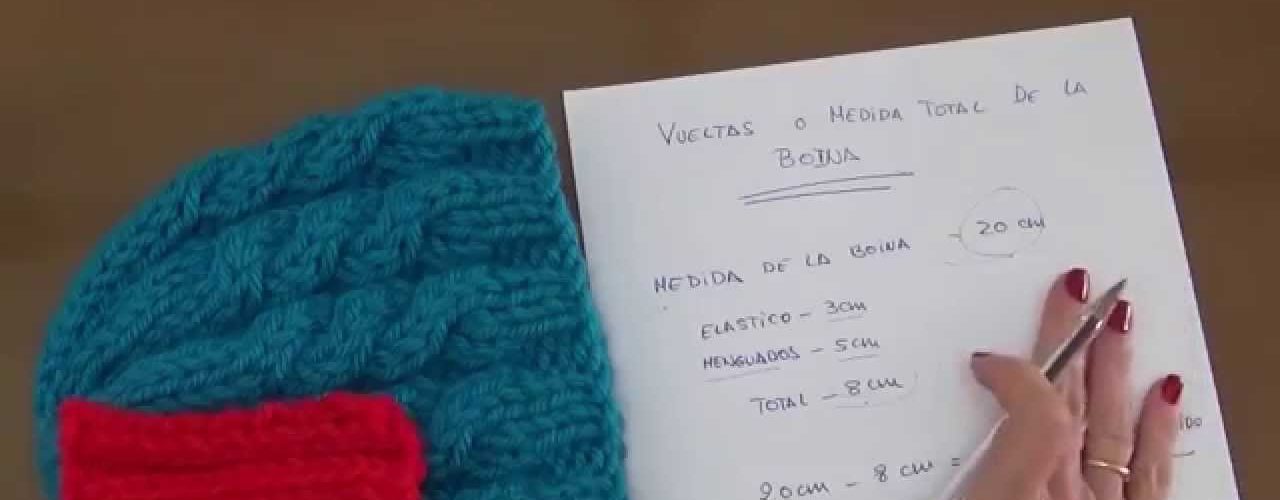 VUELTAS O MEDIDA TOTAL DE LA
BOINA
MEDIDA DE LA BOINA - 20 cm
ELASTICO - 3cm
MENGUADOS - 5cm
TOTAL - 8cm
20cm - 8cm =